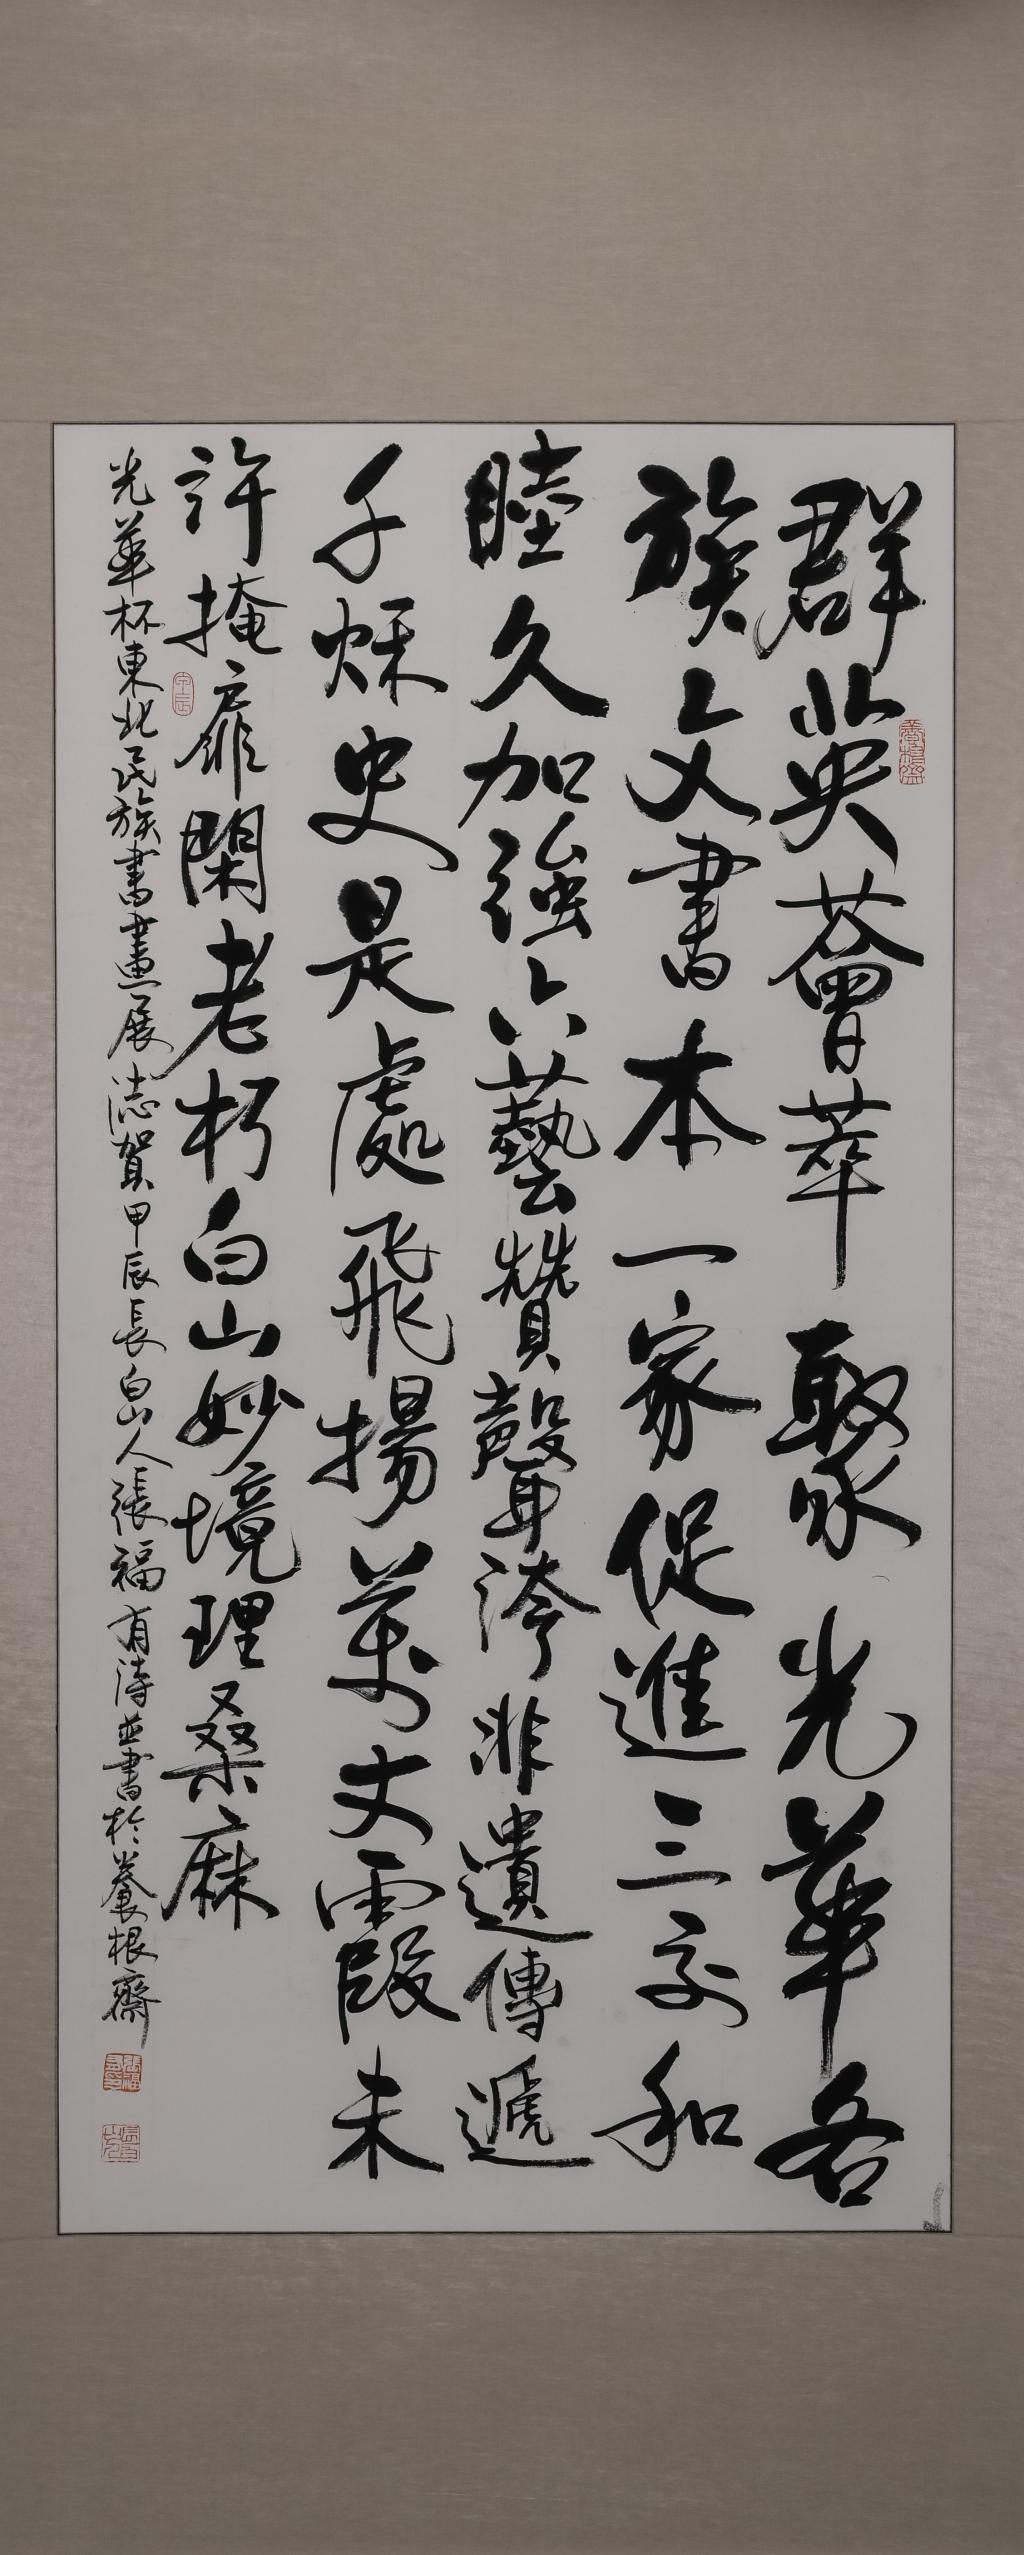 群英薈萃聚光華各
族文書本一家促進三交和
睦久加強六藝贊聲誇非遺傳遞
千秌史是處飛揚萬丈霞未
許掩扉閑老朽白山妙境理桑麻
光華杯東北民族書畫展誌賀甲辰長白山人張福有詩並書於養根齋